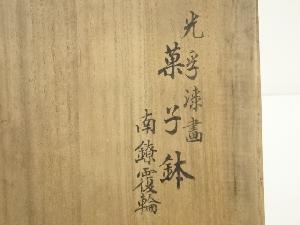 光孚漆畫
菓子鉢
南鐐覆輪